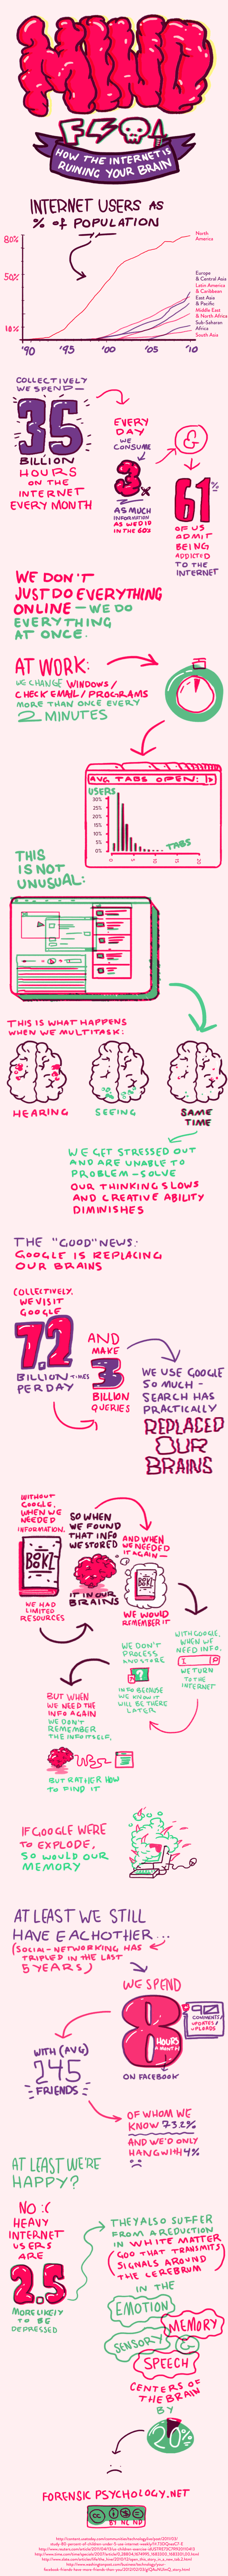 MIND
HOW THE INTERNET IS
RUINING YOUR BRAIN
INTERNET USERS AS
% of POPULATION
80%
50%
10%
'90
'95
'00
'05
'10
North
America
Europe
& Central Asia
Latin America
& Caribbean
East Asia
& Pacific
Middle East
& North Africa
Sub-Saharan
Africa
South Asia
COLLECTIVELY
WE SPEND
35
BILLION
HOURS
ON THE
INTERNET
EVERY MONTH
EVERY
DAY
WE
CONSUME
3x
AS MUCH
INFORMATION
AS WE DID
IN THE 60s
&
61%
OF US
ADMIT
BEING
ADDICTED
TO THE
INTERNET
WE DON'T
JUST DO EVERYTHING
ONLINE - WE DO
EVERYTHING
AT ONCE.
AT WORK:
WE CHANGE WINDOWS/
CHECK EMAIL/PROGRAMS
MORE THAN ONCE EVERY
2 MINUTES
AVG TABS OPEN:
USERS
30%
25%
20%
15%
10%
5%
0%
0
5
10
15
20
TABS
THIS
IS NOT
UNUSUAL:
THIS IS WHAT HAPPENS
WHEN WE MULTITASK:
HEARING
SEEING
SAME
TIME
WE GET STRESSED OUT
AND ARE UNABLE TO
PROBLEM-SOLVE
OUR THINKING SLOWS
AND CREATIVE ABILITY
DIMINISHES
THE "GOOD" NEWS:
GOOGLE IS REPLACING
OUR BRAINS
COLLECTIVELY,
WE VISIT
GOOGLE
7.2
BILLION TIMES
PER DAY
AND
MAKE
3
BILLION
QUERIES
WE USE GOOGLE
SO MUCH -
SEARCH HAS
PRACTICALLY
REPLACED
OUR
BRAINS
WITHOUT
GOOGLE,
WHEN WE
NEEDED
INFORMATION,
WE HAD
LIMITED
RESOURCES
SO WHEN
WE FOUND
THAT INFO
WE STORED
IT IN OUR
BRAINS
AND WHEN
WE NEEDED
IT AGAIN-
WE WOULD
REMEMBER IT
WITH GOOGLE,
WHEN WE
NEED INFO,
WE TURN
TO THE
INTERNET
WE DON'T
PROCESS
AND STORE
INFO BECAUSE
WE KNOW IT
WILL BE THERE
LATER
BUT WHEN
WE NEED THE
INFO AGAIN
WE DON'T
REMEMBER
THE INFO ITSELF,
BUT RATHER HOW
TO FIND IT
IF GOOGLE WERE
TO EXPLODE,
SO WOULD OUR
MEMORY
AT LEAST WE STILL
HAVE EACHOTHER...
(SOCIAL-NETWORKING HAS
TRIPLED IN THE LAST
5 YEARS)
WE SPEND
8
HOURS
A MONTH
ON FACEBOOK
90
COMMENTS/
UPDATES/
UPLOADS
WITH (AVG)
245
FRIENDS
OF WHOM WE
KNOW 73.2%
AND WE'D ONLY
HANG WITH 4%
AT LEAST WE'RE
HAPPY?
NO :(
HEAVY
INTERNET
USERS
ARE
2.5
MORE LIKELY
TO BE
DEPRESSED
THEY ALSO SUFFER
FROM A REDUCTION
IN WHITE MATTER
(GOO THAT TRANSMITS
SIGNALS AROUND
THE CEREBRUM)
IN THE
EMOTION
MEMORY
SENSORY
&
SPEECH
CENTERS OF
THE BRAIN
BY
20%
FORENSIC PSYCHOLOGY.NET
CC
BY NC ND